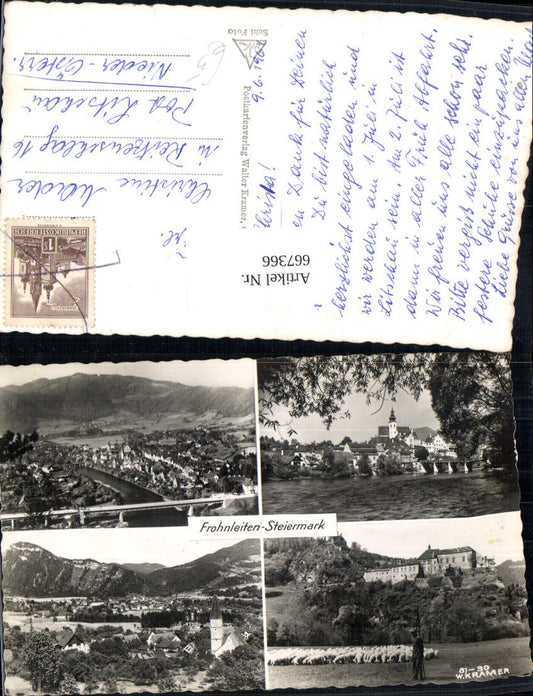 9. 6. 19
Christa!
en Dank für Deinen
Du bist natürlich
herzlichst eingeladen und
wir werden am 1. Juli in
Litschau sein. Am 2. Juli ist
dann in aller Früh Abfahrt.
Wir freuen uns alle schon sehr.
Bitte vergiß nicht ein paar
festere Schuhe einzupacken.
Liebe Grüsse von uns allen
Echt Foto
Postkartenverlag Walter Kramer,
Artikel Nr.
667366
REPUBLIK ÖSTERREICH
Frl.
Christine
Reitzenschlag 16
Post Litschau
Nieder-Österr.
Frohnleiten-Steiermark
01-30
W.KRAMER